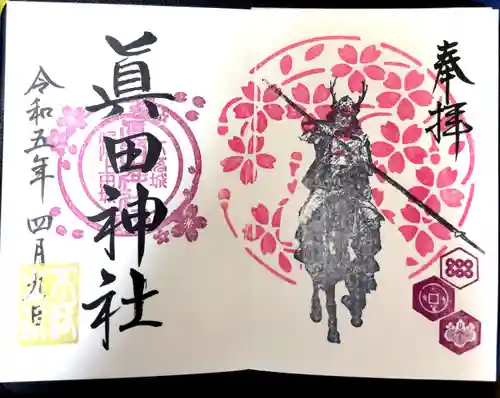 奉拝
眞田神社
令和五年 四月九日